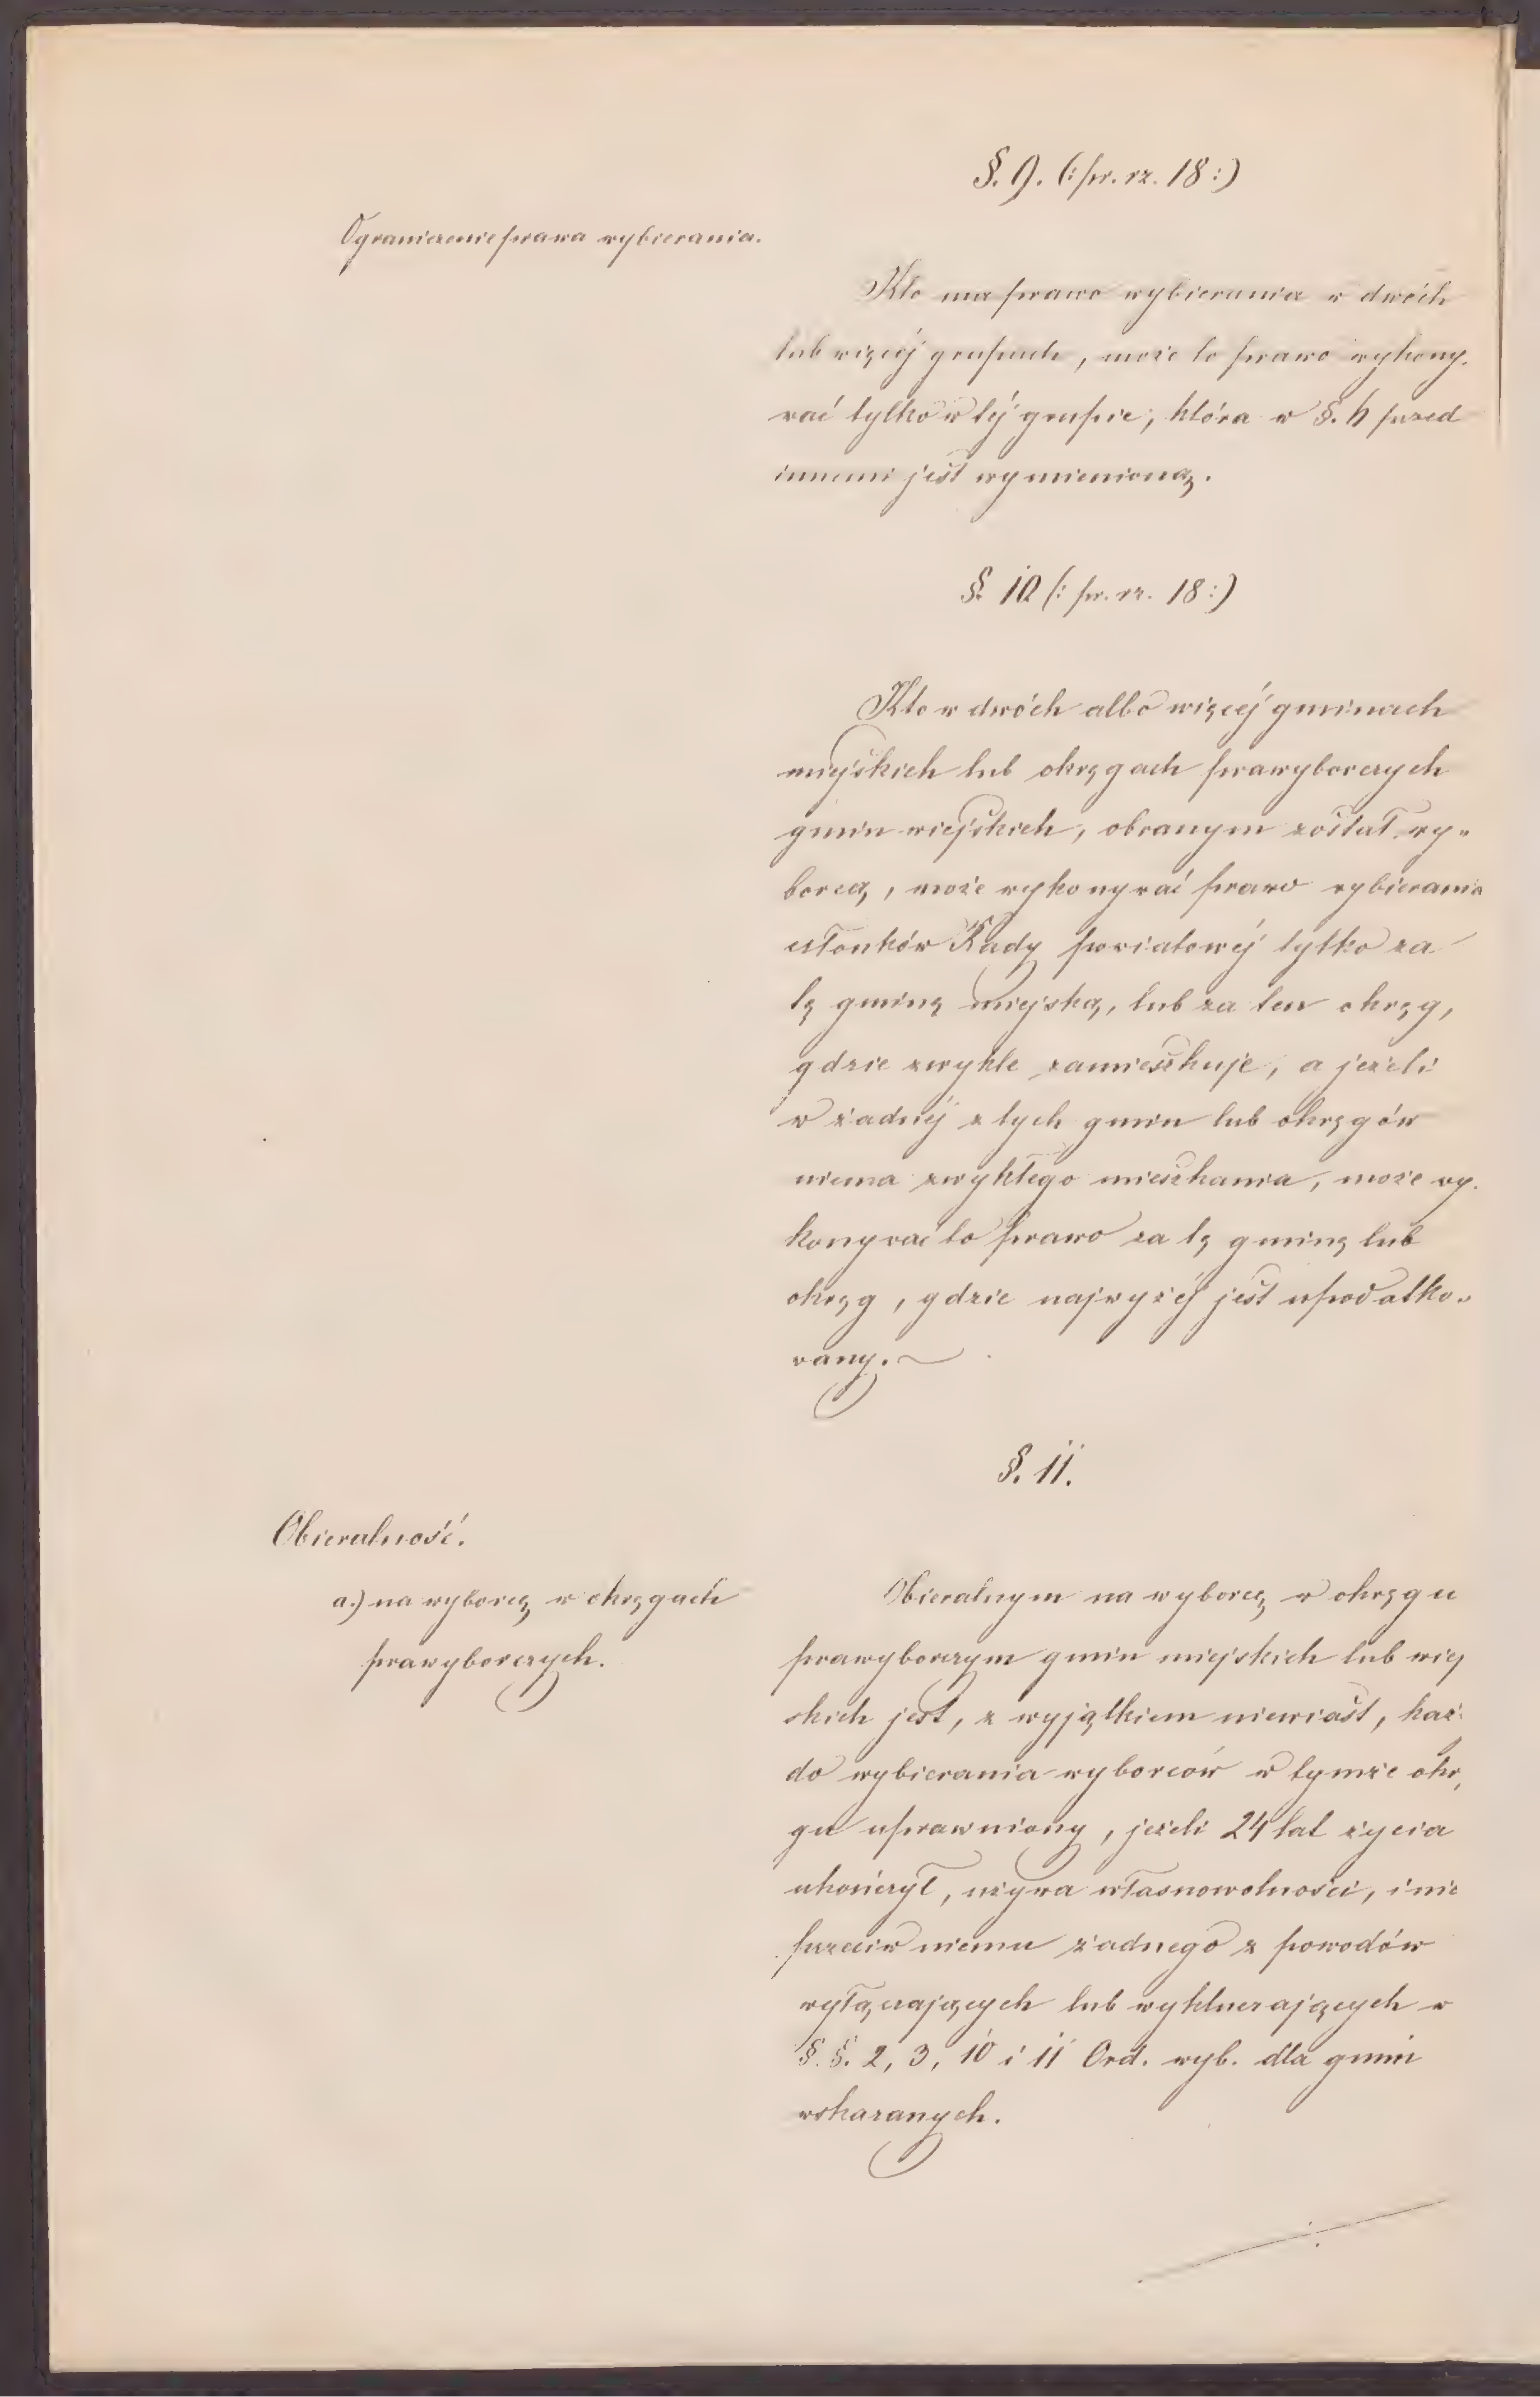 §. 9. (: pr. rz. 18 :)
Ograniczenie prawa wybierania.
Kto ma prawo wybierania w dwóch
lub więcéj grupach, może to prawo wykony-
wać tylko w téj grupie, która w §. przed
innemi jest wymienioną.
§. 10 (: pr. rz. 18 :)
Kto w dwóch albo więcéj gminach
miejskich lub okręgach prawyborczych
gmin wiejskich, obranym został wy-
borcą, może wykonywać prawo wybierania
członków Rady powiatowéj tylko za
tę gminę miejską, lub za ten okręg,
gdzie zwykle zamieszkuje, a jeżeli
w żadnéj z tych gmin lub okręgów
niema zwykłego mieszkania, może wy-
konywać to prawo za tę gminę lub
okręg, gdzie najwyżéj jest upodatko-
wany.
§. 11.
Obieralność.
a.) na wyborcę w okręgach
prawyborczych.
Obieralnym na wyborcę w okręgu
prawyborczym gmin miejskich lub wiej
skich jest, z wyjątkiem niewiast, każ
do wybierania wyborców w tymże okr
gu uprawniony, jeżeli 24 lat życia
ukończył, używa własnowolności, i nie
przeciw niemu żadnego z powodów
wyłączających lub wykluczających w
§. §. 2, 3, 10 i 11 Ord. wyb. dla gmin
wskazanych.